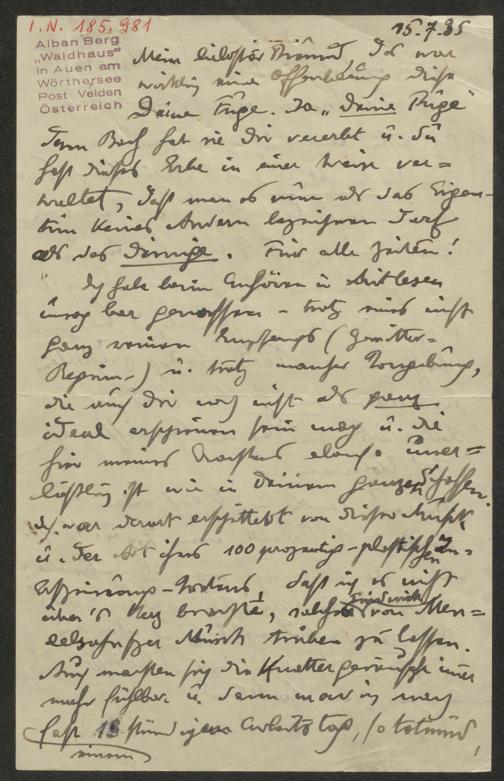 I.N. 185.981
15.7.35
Alban Berg
„Waldhaus"
in Auen am
Wörthersee
Post Velden
Österreich
Mein liebster Freund, das war
wirklich eine Offenbarung diese
Deine Fuge. Ja „Deine Fuge"
Denn Bach hat sie Dir vererbt u. Du
hast dieses Erbe in einer Weise ver=
waltet, daß man es nun als das Eigen=
tum keines Andern bezeichnen darf
als das Deinige. Für alle Zeiten!
Ich habe beim Anhören u. Mitlesen
unsagbar genossen - trotz eines nicht
ganz reinen Empfangs (Gewitter=
Regein-) u. trotz mancher
die auch Dir noch nicht als ganz
ideal erschienen sein mag u. die
hier meines Erachtens ebenso uner=
läßlich ist wie in Deinem ganzen Schaffen.
Ich war derart erschüttert von dieser Musik
u. der Art ihres 100 prozentig-plastischen In-
Erscheinung-tretens, daß ich es nicht
über's Herz brachte, solchen Eindruck von Men=
delssohn'scher Musik trüben zu lassen.
Auch machten sich die Knattergeräusche immer
mehr fühlbar u. dann war ich nach
fast 18 stündigem Arbeitstag, so totmüd,
einem